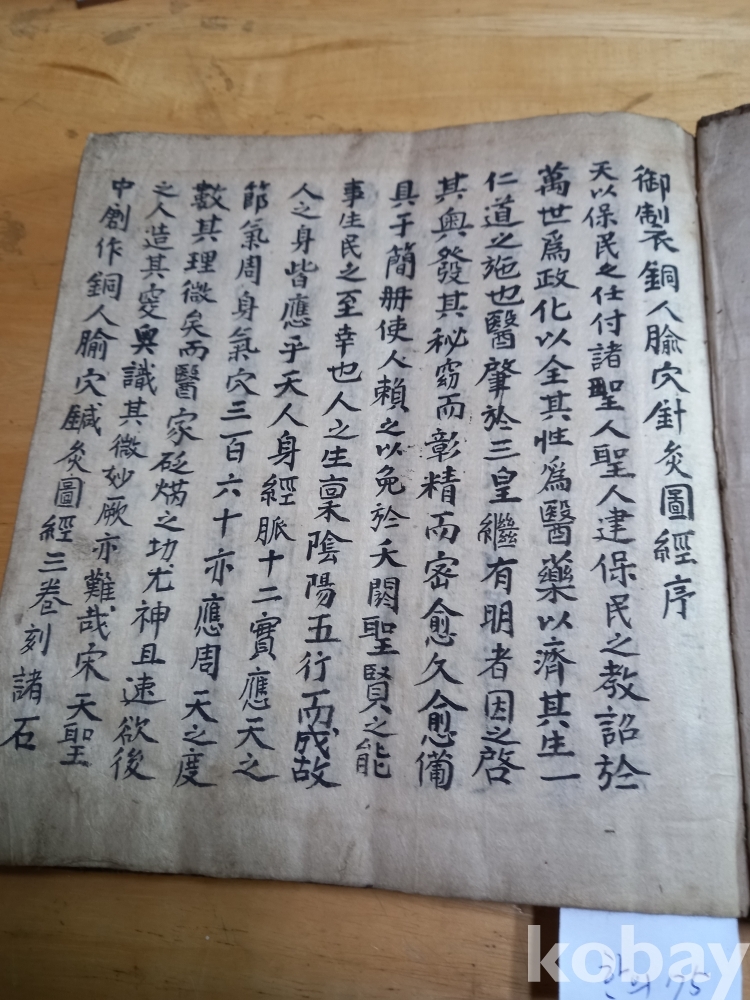 御制衣銅人腧穴針灸圖經序
天以保民之任付諸聖人聖人建保民之教詔於
萬世爲政化以全其性爲醫藥以濟其生一
仁道之施也醫肇於三皇繼有明者因之啓
其奧發其秘窈而彰精而密愈久愈備
具于簡册使人賴之以免於夭閼聖賢之能
事生民之至幸也人之生稟陰陽五行而成故
人之身皆應乎天人身經脈十二實應天之
節氣周身氣穴三百六十亦應周天之度
數其理微矣而醫家砭焫之功尤神且速欲後
之人造其窔奧識其微妙厥亦難哉宋天聖
中創作銅人腧穴鍼灸圖經三卷刻諸石
kobay
한의 175